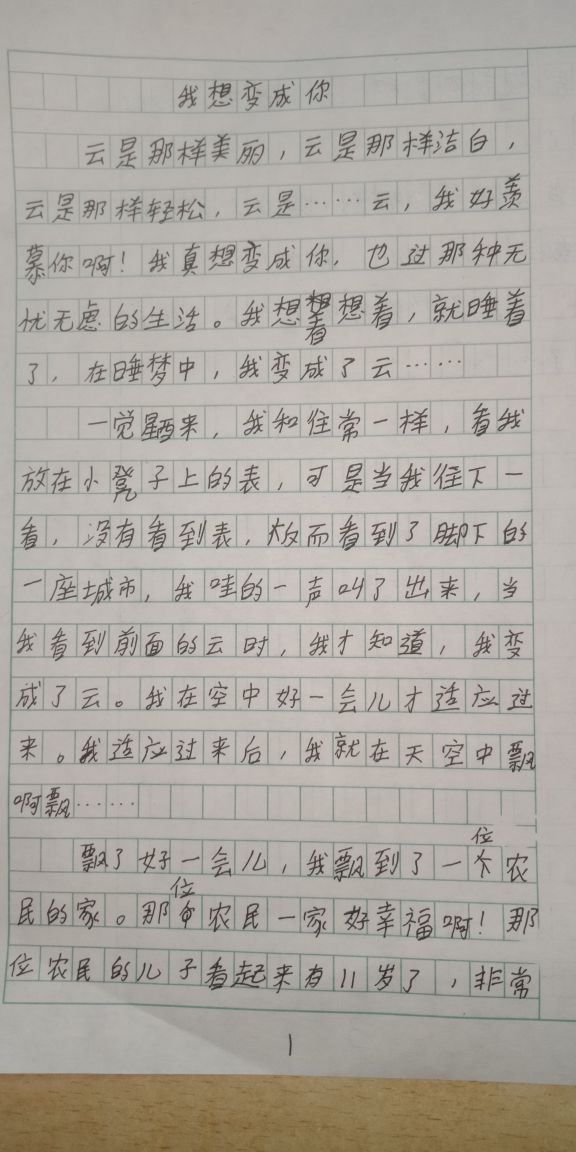 我想变成你
云是那样美丽，云是那样洁白，
云是那样轻松，云是……云，我好羡
慕你啊！我真想变成你，也过那种无
忧无虑的生活。我想着想着，就睡着
了，在睡梦中，我变成了云……
一觉醒来，我和往常一样，看我
放在小凳子上的表，可是当我往下一
看，没有看到表，反而看到了脚下的
一座城市，我哇的一声叫了出来，当
我看到前面的云时，我才知道，我变
成了云。我在空中好一会儿才适应过
来。我适应过来后，我就在天空中飘
啊飘……
飘了好一会儿，我飘到了一位农
民的家。那位农民一家好幸福啊！那
位农民的儿子看起来有11岁了，非常
1